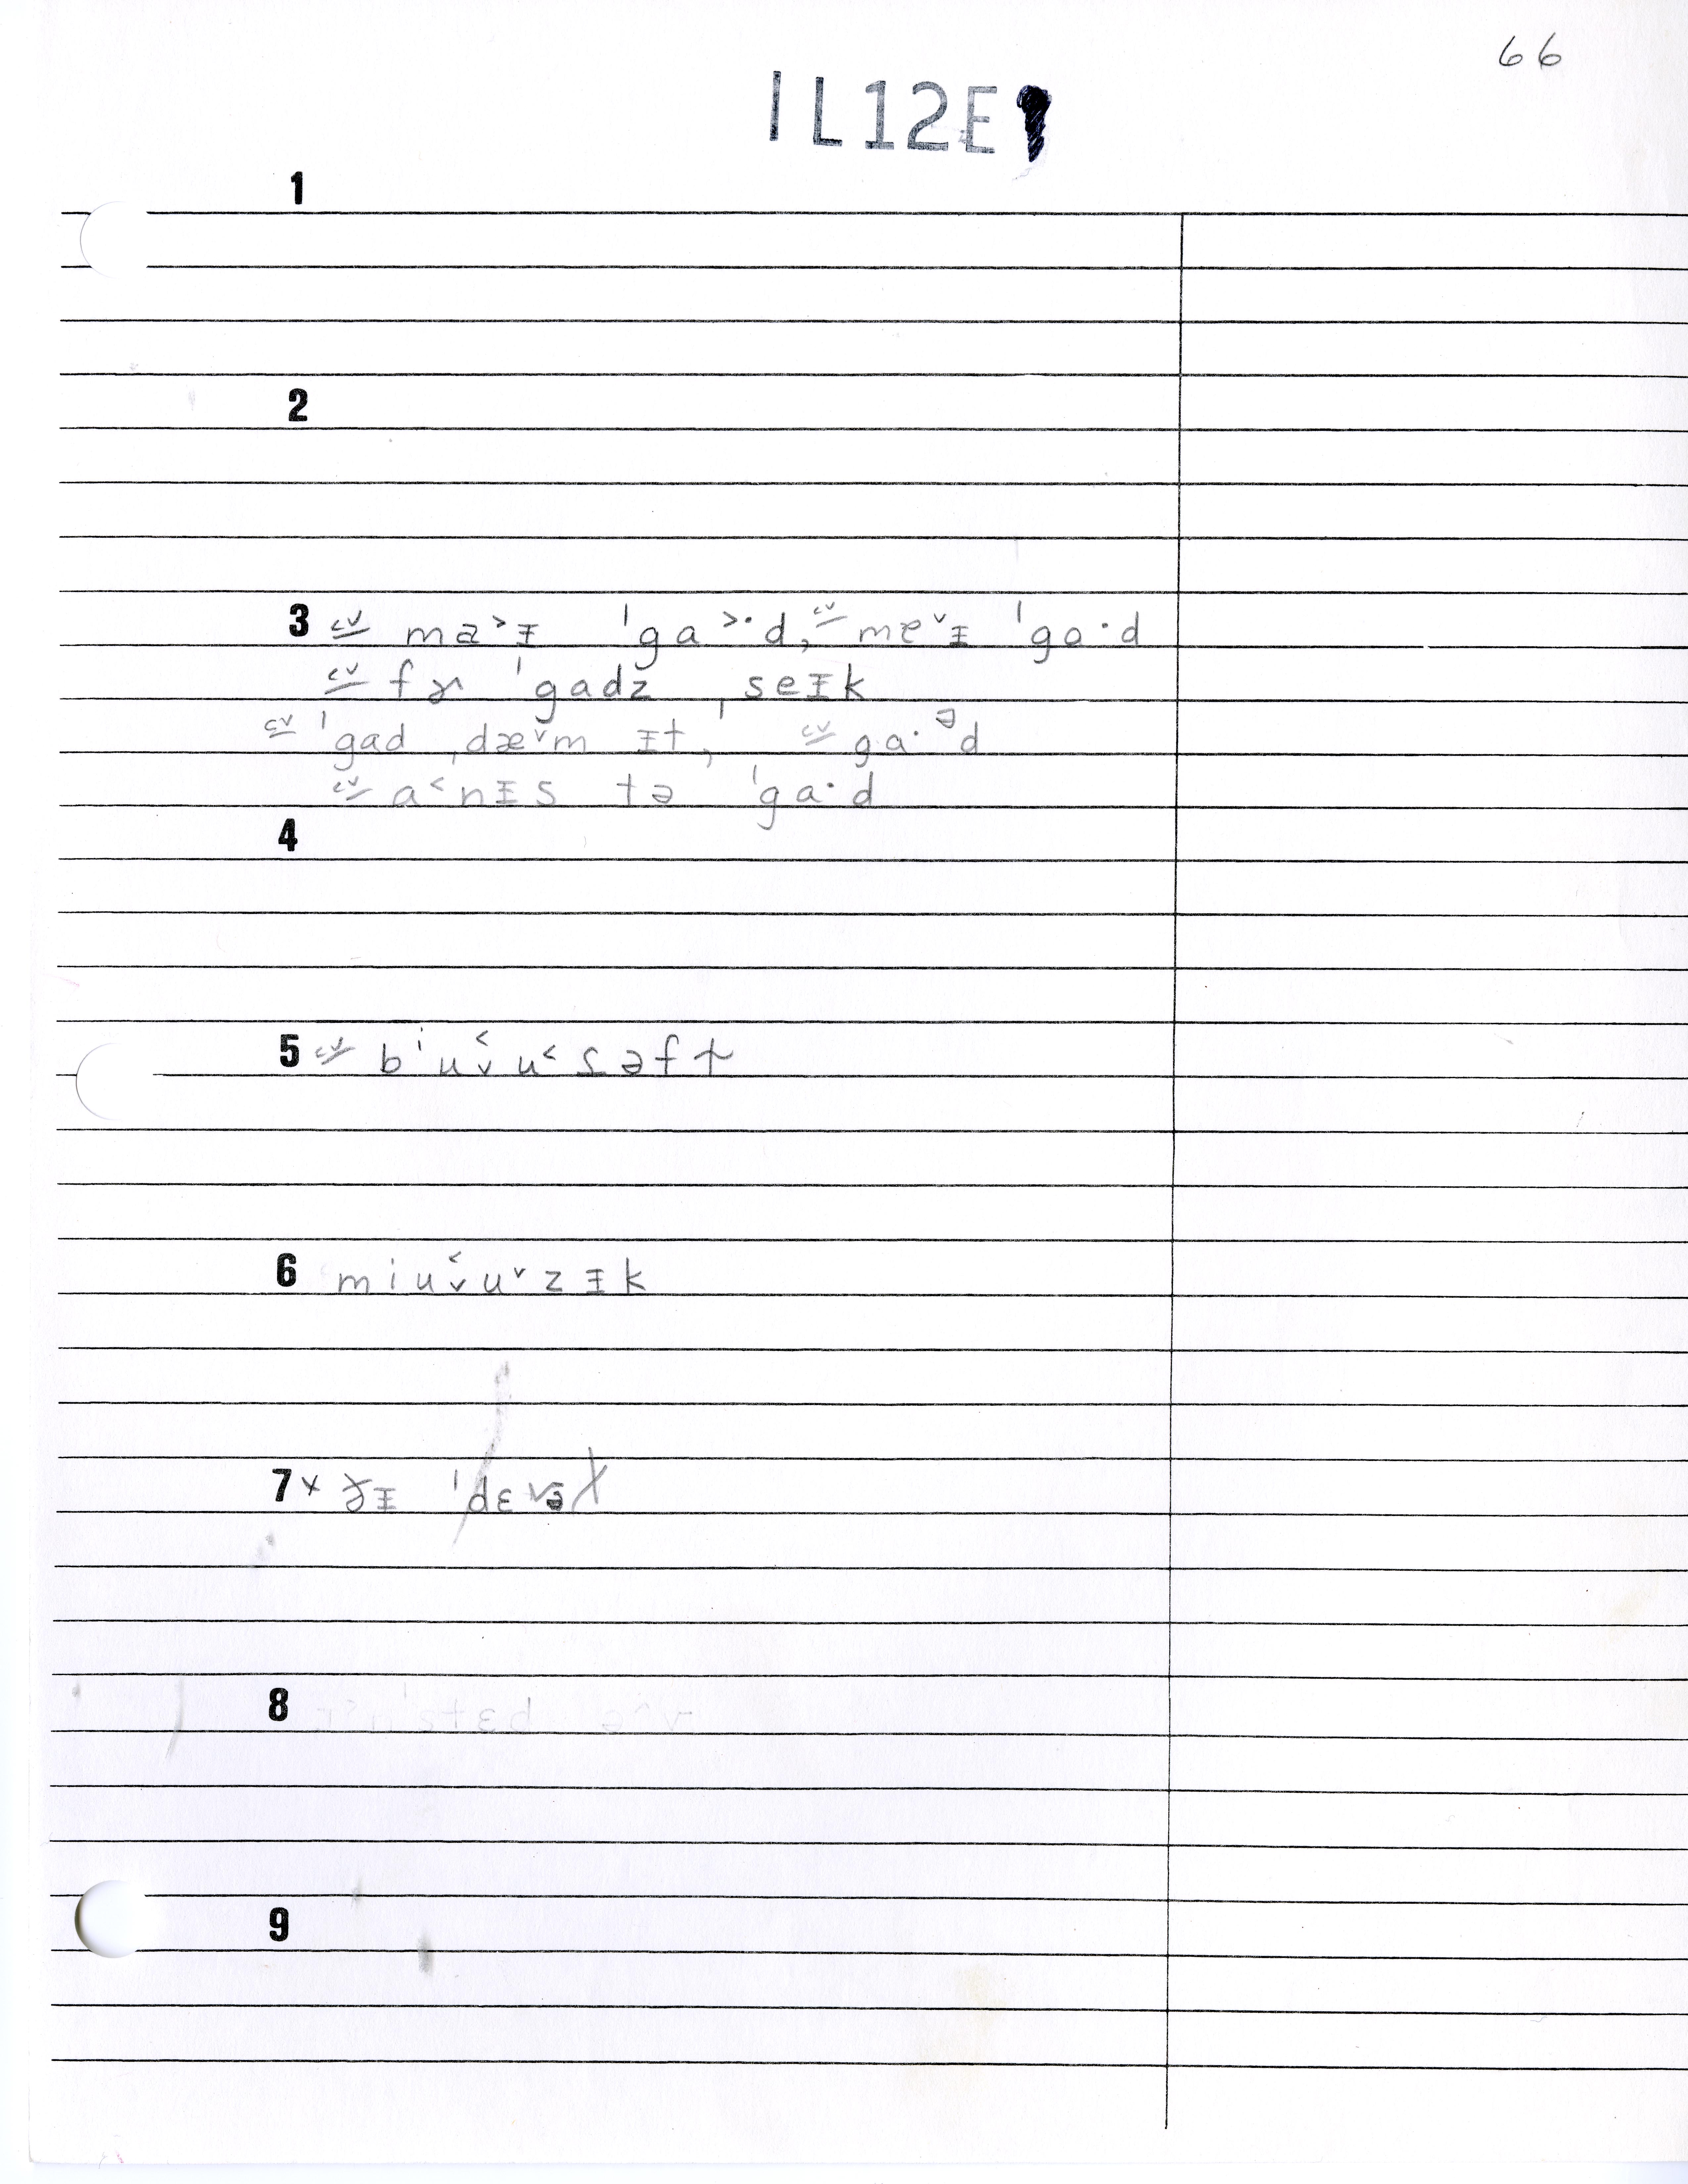 66
IL12E
1
2
3 cv ma˃ɪ ˈga˃·d, cv mɐ˅ɪ ˈgɑ·d
cv fɚ ˈgadz ˌseɪk
cv ˈgad ˌdæ˅m ɪt, cv ga·ᵊd
cv a˂nɪs tə ˈga·d
4
5 cv bⁱu˂˅u˂s̬əft
6 miu˂˅u˅zɪk
7 x ðɪ ˈdɛvəl
8
9